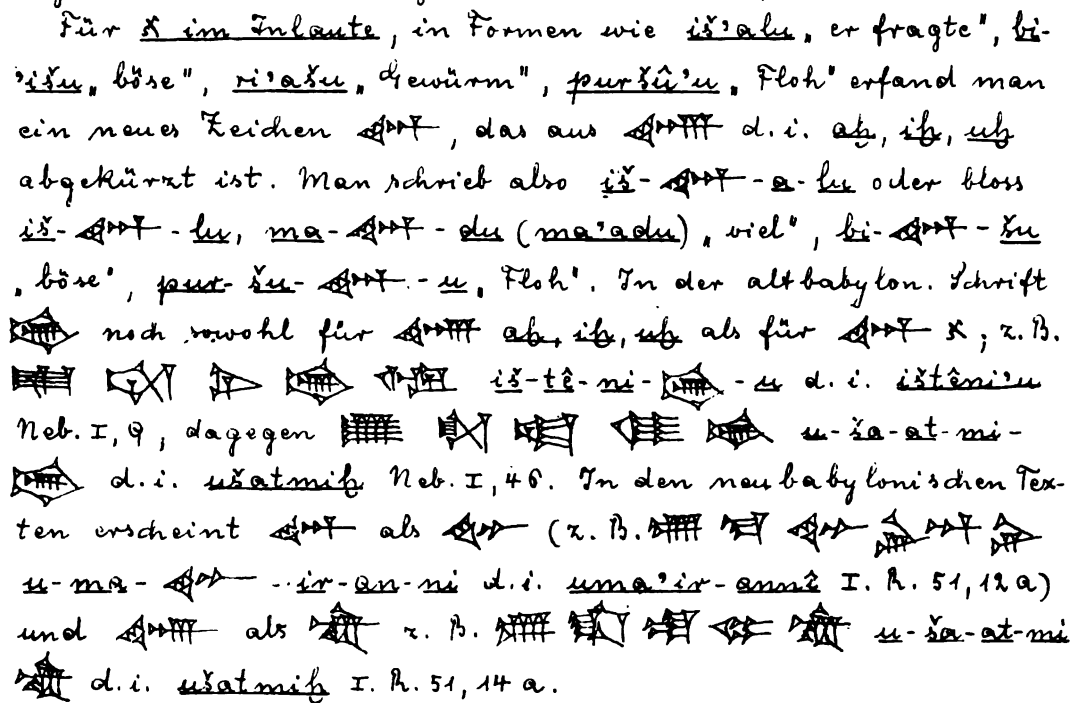 Für א im Inlaute, in Formen wie iš’alu „er fragte“, bi-
’išu „böse“, ri’ašu „Gewürm“, puršû’u „Floh“ erfand man
ein neues Zeichen 𒀪, das aus 𒄴 d. i. aḫ, iḫ, uḫ
abgekürzt ist. Man schrieb also iš-𒀪-a-lu oder bloss
iš-𒀪-lu, ma-𒀪-du (ma’adu) „viel“, bi-𒀪-šu
„böse“, pur-šu-𒀪-u „Floh“. In der altbabylon. Schrift
𒄴 noch sowohl für 𒄴 aḫ, iḫ, uḫ als für 𒀪 א; z. B.
iš-tê-ni-𒄴-u d. i. ištêni’u
Neb. I, 9, dagegen u-ša-at-mi-
𒄴 d. i. ušatmiḫ Neb. I, 46. In den neubabylonischen Tex-
ten erscheint 𒀪 als 𒀪 (z. B.
u-ma-𒀪-ir-an-ni d. i. uma’ir-annî I. R. 51, 12 a)
und 𒄴 als 𒄴 z. B. u-ša-at-mi
𒄴 d. i. ušatmiḫ I. R. 51, 14 a.